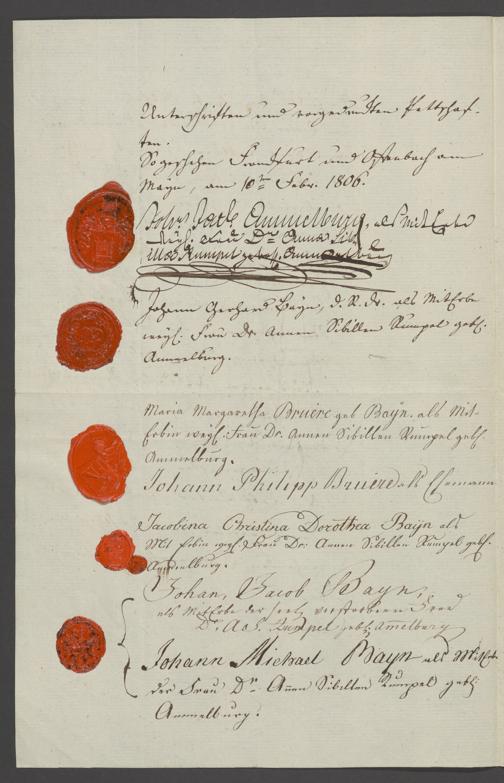 Unterschriften und vorgedruckten Pettschaf-
ten.
So geschehen Frankfurt und Offenbach am
Mayn, am 10ten Febr. 1806.
Johs. Jacb. Ammelburg, als Mit Erbe
weyl. Frau Dr. Anna Sib
Rumpel gebohr. Ammelburg
Johann Gerhard Bayn, d. R. Dr. als MitErbe
weyl. Frau Dr. Annen Sibillen Rumpel gebh.
Ammelburg.
Maria Margaretha Bruere geb Bayn. als Mit-
Erbin weyl. Frau Dr. Annen Sibillen Rumpel gebh.
Ammelburg.
Johann Philipp Bruere als Ehemann
Jacobina Christina Dorothea Bayn als
Mit Erbin weyl. Frau Dr. Annen Sibillen Rumpel gebh.
Ammelburg.
Johan, Jacob Bayn,
als MitErbe der seel. verstorbenen Frau
Dr. A. S. Rumpel gebh. Amelburg
Johann Michael Bayn als MitErbe
der Frau Dr. Annen Sibillen Rumpel gebh
Ammelburg.